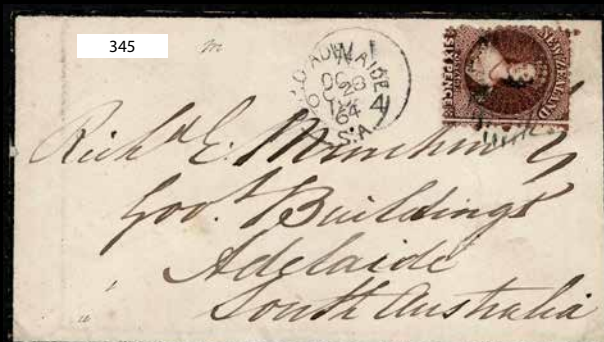 345
m
G.P.O ADELAIDE
W 1
OC 28
64
S.A
NEW ZEALAND
SIXPENCE
Richd E. Minchin Esq
Govt Buildings
Adelaide
South Australia